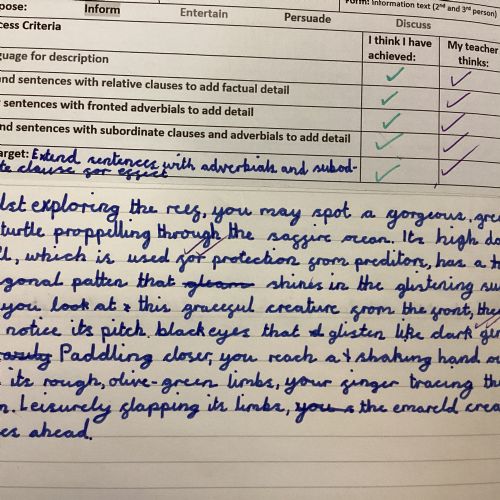 pose: Inform Entertain Persuade Discuss
Form: Information text (2nd and 3rd person)
ess Criteria
I think I have achieved:
My teacher thinks:
guage for description
nd sentences with relative clauses to add factual detail
sentences with fronted adverbials to add detail
nd sentences with subordinate clauses and adverbials to add detail
arget: Extend sentences with adverbials and subod-
te clause for effect
lst exploring the reef, you may spot a gorgeous, gre
turtle proppelling through the saffire ocean. Its high do
ll, which is used for protection from preditors, has a
gonal patten that gleam shinis in the glistening su
you look at this graceful creature from the front, they
notice its pitch black eyes that glisten like dark
Paddling closer, you reach a shaking hand
its rough, olive-green limbs, your finger tracing the
n. Leisurely flapping its limbs, you the emareld crea
es ahead.